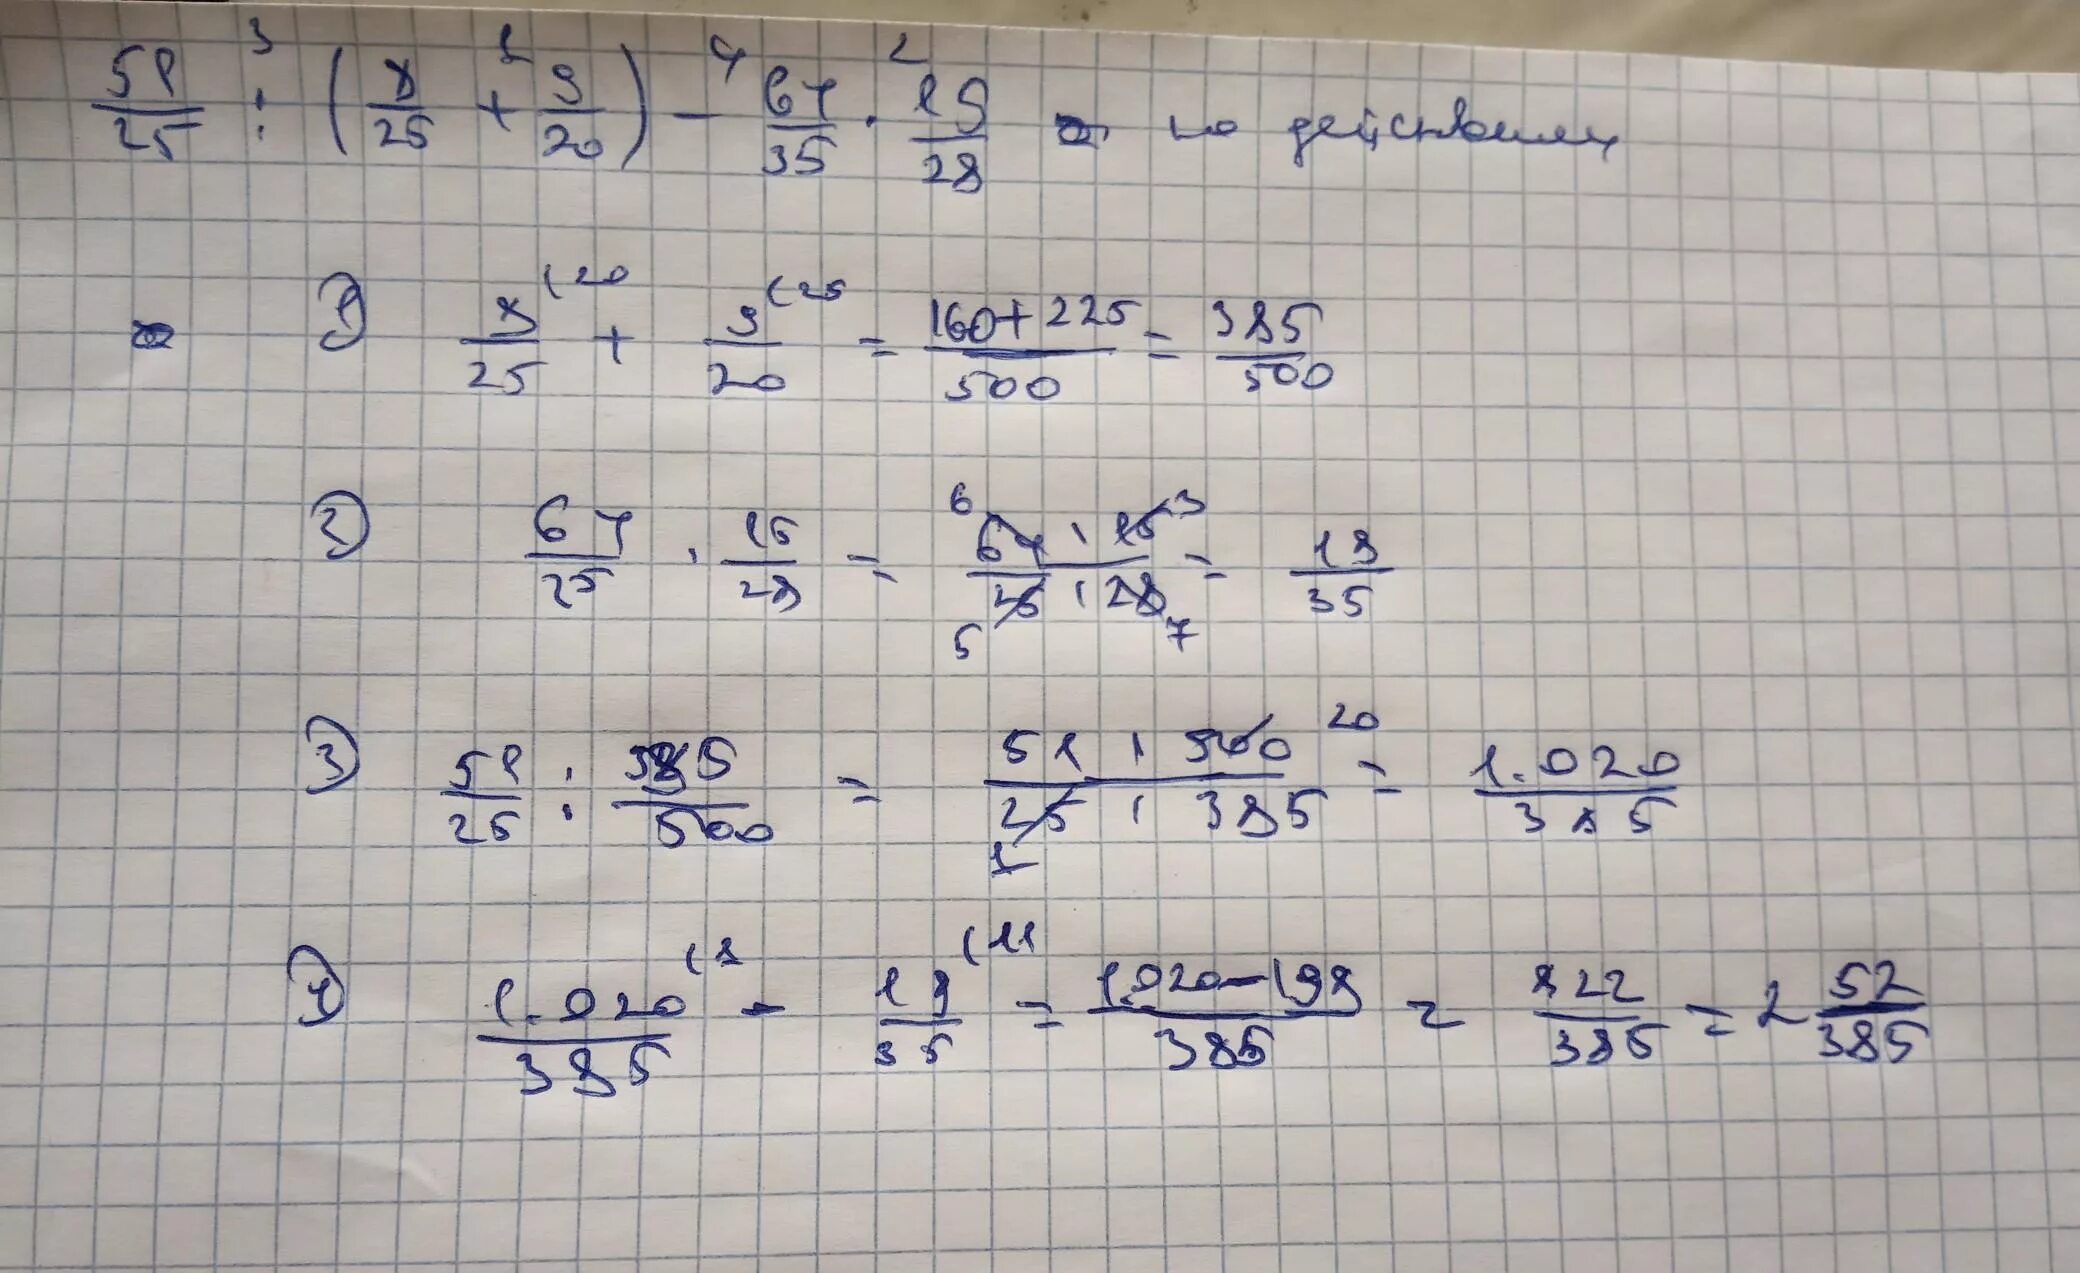 51/25 : (8/25 + 9/20) - 64/35 · 15/28 по действиям
3 1 4 2
1) 8/25 (20 + 9/20 (25 = 160+225/500 = 385/500
2) 64/25 · 15/28 = 64 · 15/25 · 28 = 18/35
6 3 5 7
3) 51/25 : 385/500 = 51 · 500/25 · 385 = 1.020/385
20 1
4) 1.020/385 (1 - 18/35 (11 = 1.020-198/385 = 822/385 = 2 52/385